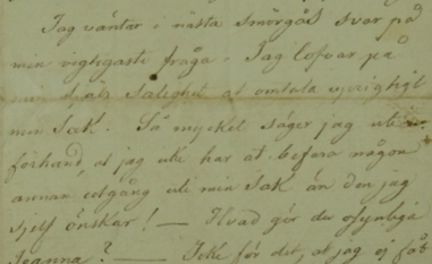 Jag väntar i nästa smörgås svar på
min vigtigaste fråga. Jag lofvar på
min själs salighet at omtala uprigtigt
min sak. Så mycket säger jag uti
förhand, at jag icke har at befara någon
annan utgång uti min sak än den jag
sjelf önskar! — Hvad gör du
Jeanna? — Icke för det, at jag ej fåt